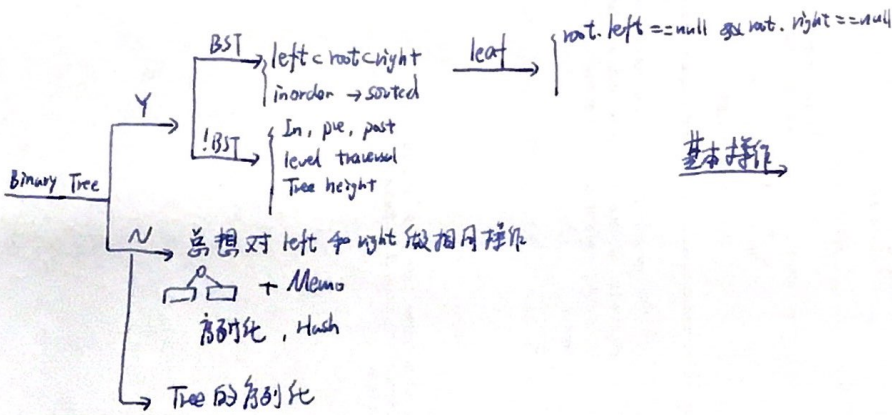 BST
left < root < right
inorder → sorted
leaf
root.left == null && root.right == null
Y
!BST
In, pre, post
level traversal
Tree height
基本操作
Binary Tree
N
总想对 left 和 right 做相同操作
+ Memo
序列化, Hash
Tree 的序列化